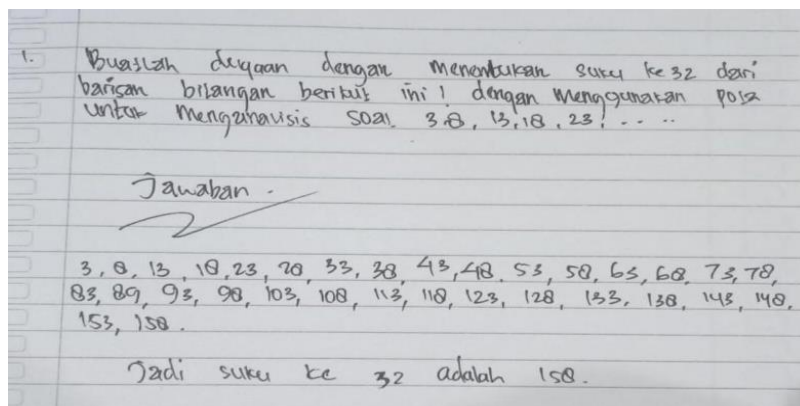 1. Buatlah dugaan dengan menentukan suku ke 32 dari
barisan bilangan berikut ini! dengan menggunakan pola
untuk menganalisis soal 3,8, 13, 18, 23! .. ..
Jawaban.
3, 8, 13, 18, 23, 28, 33, 38, 43, 48, 53, 58, 63, 68, 73, 78,
83, 89, 93, 98, 103, 108, 113, 118, 123, 128, 133, 138, 143, 148,
153, 158.
Jadi suku ke 32 adalah 158.